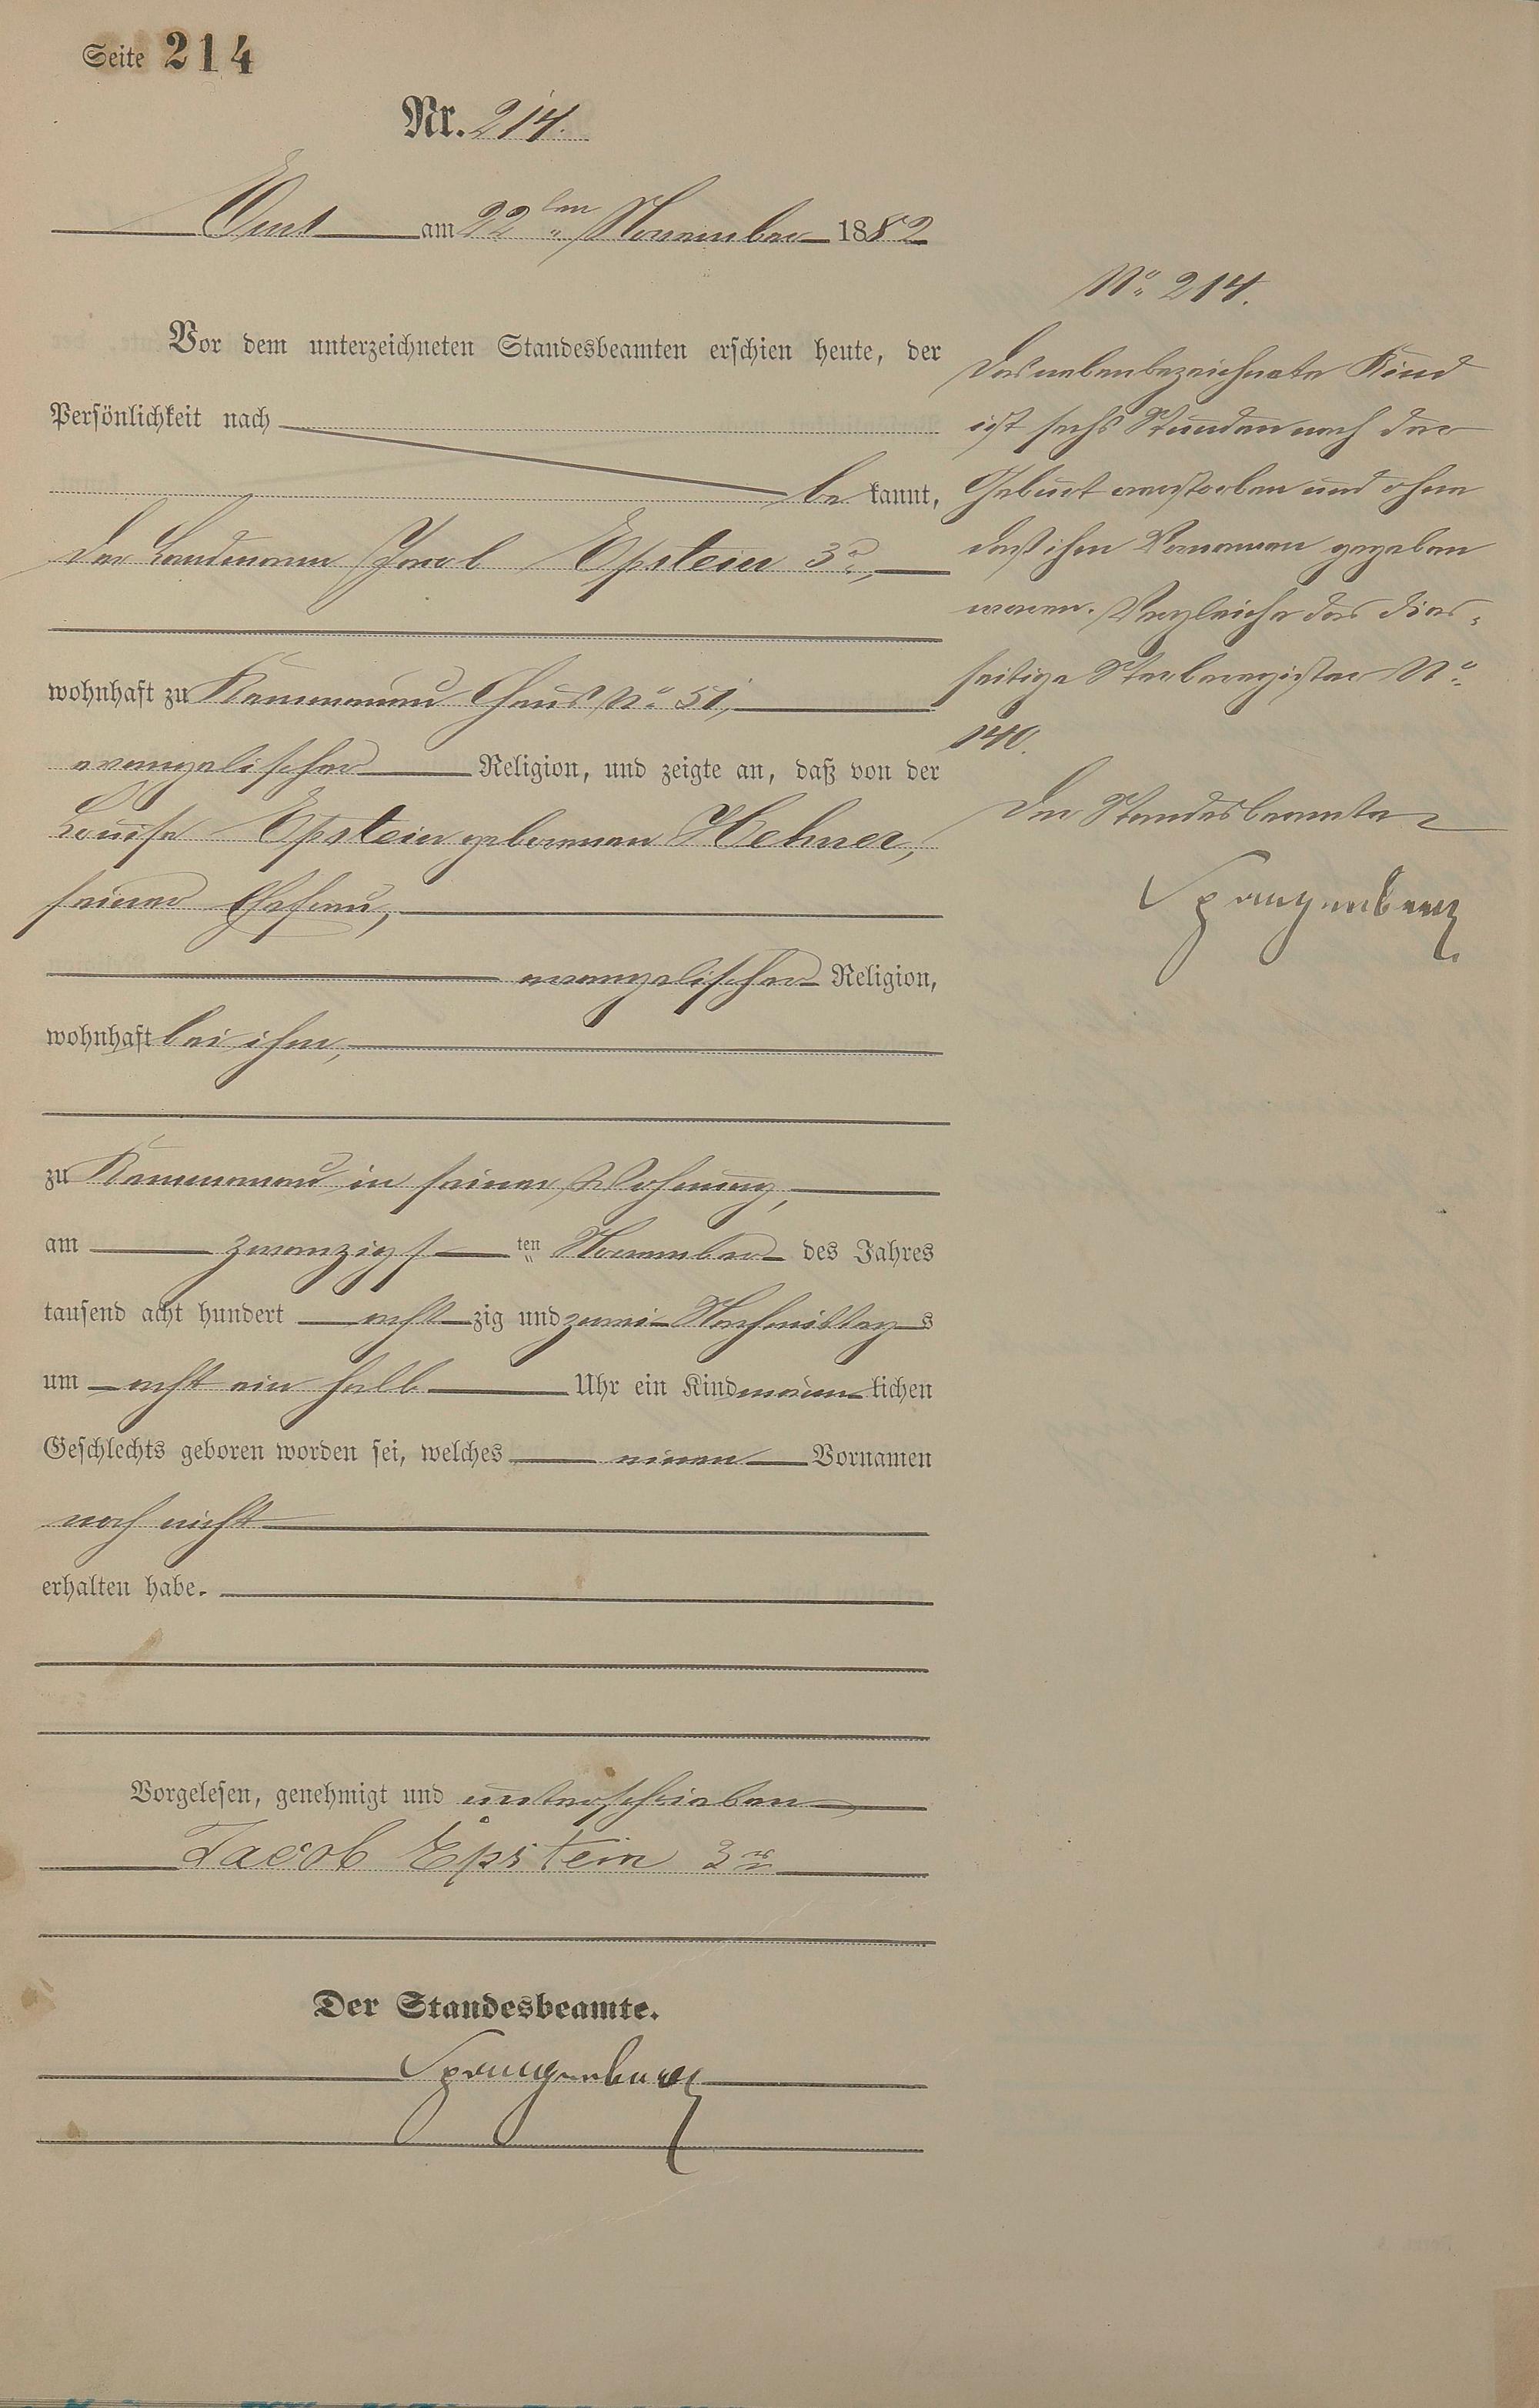 Seite 214
Nr. 214.
Ems am 22ten November 1882
Vor dem unterzeichneten Standesbeamten erschien heute, der
Persönlichkeit nach
be kannt,
der Landmann Jacob Epstein 3r,
wohnhaft zu Kemmenau Haus No 51,
evangelischer Religion, und zeigte an, daß von der
Louise Epstein geborenen Hehner,
seiner Ehefrau,
evangelischer Religion,
wohnhaft bei ihm,
zu Kemmenau in seiner Wohnung,
am zwanzigsten November des Jahres
tausend acht hundert acht zig und zwei Nachmittags
um acht ein halb Uhr ein Kind männlichen
Geschlechts geboren worden sei, welches einen Vornamen
noch nicht
erhalten habe.
Vorgelesen, genehmigt und unterschrieben
Jacob Epstein 3r
Der Standesbeamte.
Spangenberg
No 214.
Das nebenbezeichnete Kind
ist sechs Stunden nach der
Geburt verstorben und ohne
daß ihm Vornamen gegeben
waren. Vergleiche das dies-
seitige Sterberegister No
140.
Der Standesbeamte
Spangenberg